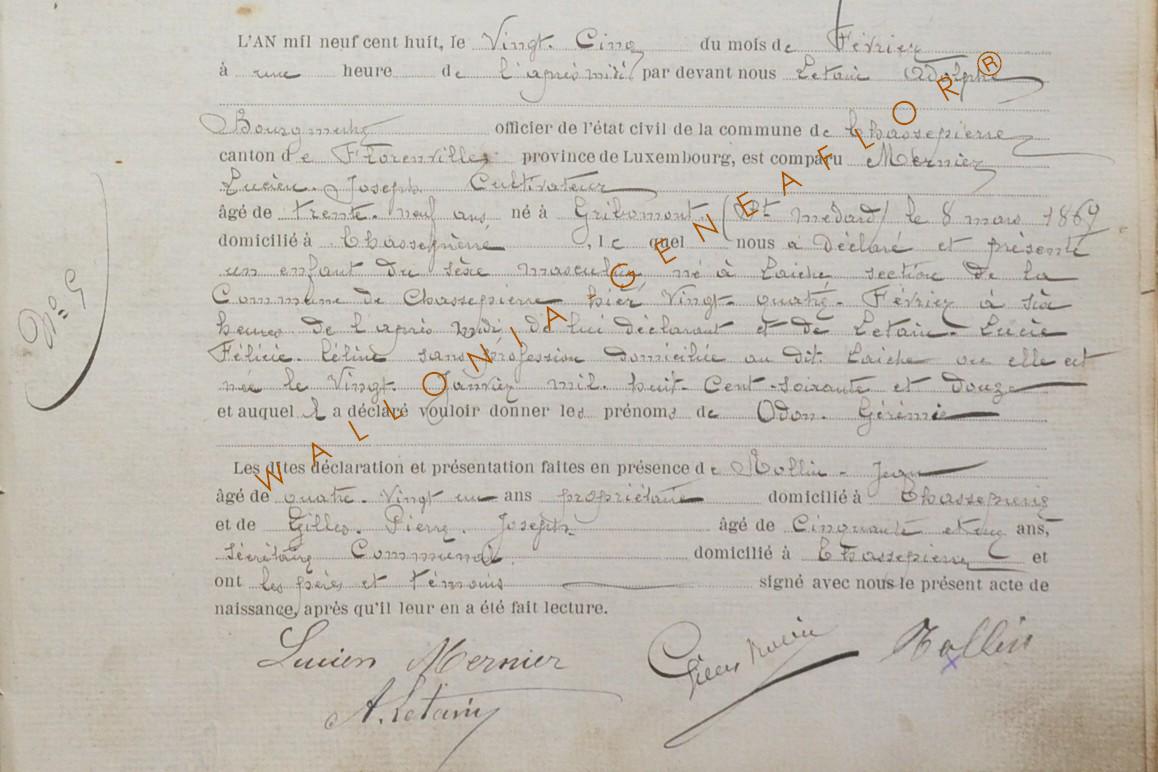 L'AN mil neuf cent huit, le Vingt. Cinq du mois de Février
à une heure de l'après midi, par devant nous Letain Adolphe
Bourgmestre officier de l'état civil de la commune de Chassepierre
canton de Florenville, province de Luxembourg, est comparu Mernier
Lucien. Joseph Cultivateur
âgé de trente. neuf ans né à Gribomont. (St médard) le 8 mars 1869
domicilié à Chassepierre, lequel nous a déclaré et présenté
un enfant du sèxe masculin né à Laiche section de la
Commune de Chassepierre hier Vingt. quatre. Février à six
heures de l'après midi, de lui déclarant et de Letain. Lucie
Félicie. Céline sans profession domiciliée au dit. Laiche où elle est
née le Vingt. Janvier mil. huit. Cent. soixante et douze
et auquel il a déclaré vouloir donner les prénoms de Odon. Gérémie
Les dites déclaration et présentation faites en présence de Rollin - Jean
âgé de quatre. Vingt un ans propriétaire domicilié à Chassepierre
et de Gilles. Pierre. Joseph. âgé de Cinquante et ans,
secrétaire Communal. domicilié à Chassepierre et
ont les pères et témoins signé avec nous le présent acte de
naissance, après qu'il leur en a été fait lecture.
Lucien Mernier Rollin
A. Letain
N° 5
WALLONIA GENEAFLOR®